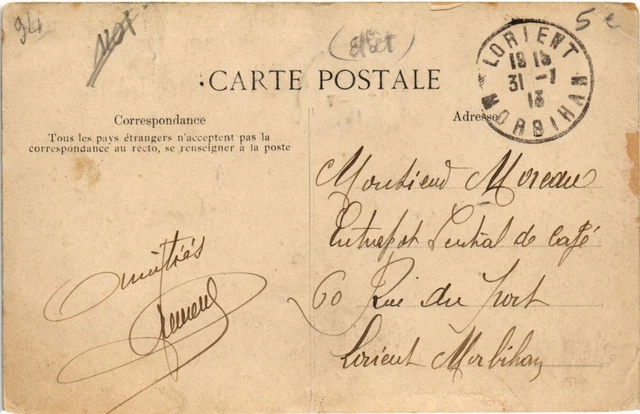 94
5 e
LORIENT
18 15
31 -7
13
MORBIHAN
CARTE POSTALE
Correspondance
Adresse
Tous les pays étrangers n'acceptent pas la
correspondance au recto, se renseigner à la poste
Monsieur Moreau
Entrepot Central de Café
60 Rue du Port
Lorient Morbihan
Amitiés